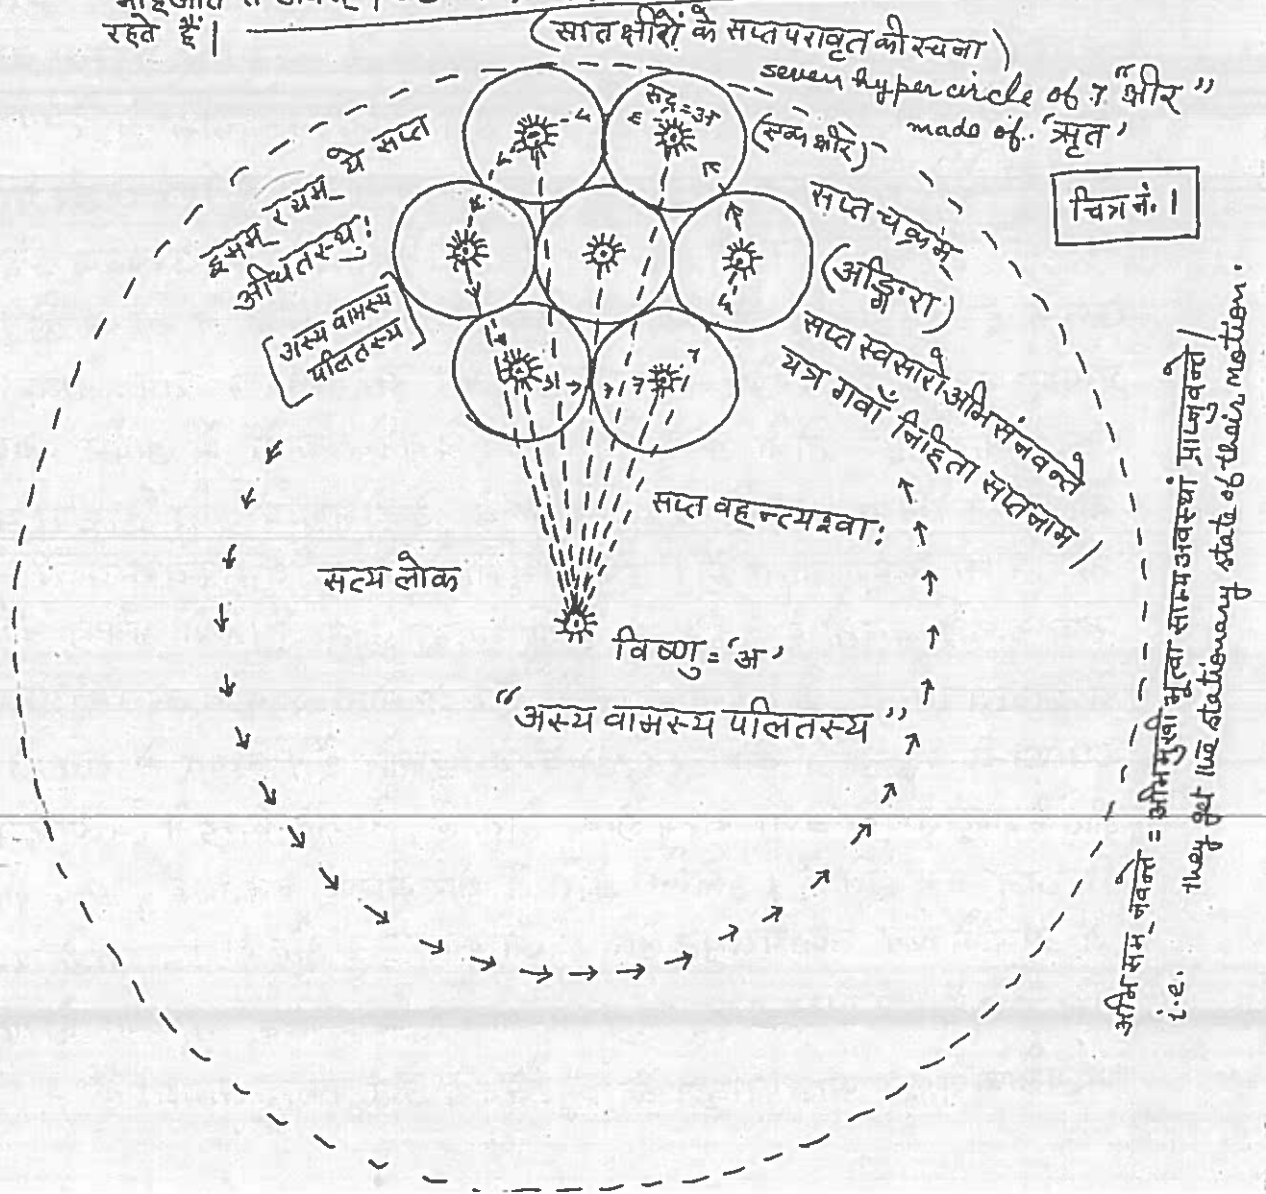 रहते हैं।
(सात क्षीरों के सप्त परावृत की रचना)
seven hyper circle of 7. "क्षीर"
made of. 'ऋृत'
चित्र नं. 1
रुद्र =
(एक क्षीर)
इमम् रथम् ये सप्त
अधितस्थुः
[अस्य वामस्य
पलितस्य]
सप्त चक्रम्
(अङ्गिरा)
सप्त स्वसारो अभि संनवन्ते
यत्र गवाँ निहिता सप्तनाम।
सप्त वहन्त्यश्वाः
सत्य लोक
विष्णु = 'अ'
"अस्य वामस्य पलितस्य"
अभि सम् नवन्ते = अभिमुखी भूत्वा साम्य अवस्थां प्राप्नुवन्ते।
i.e. they get the stationary state of their motion.